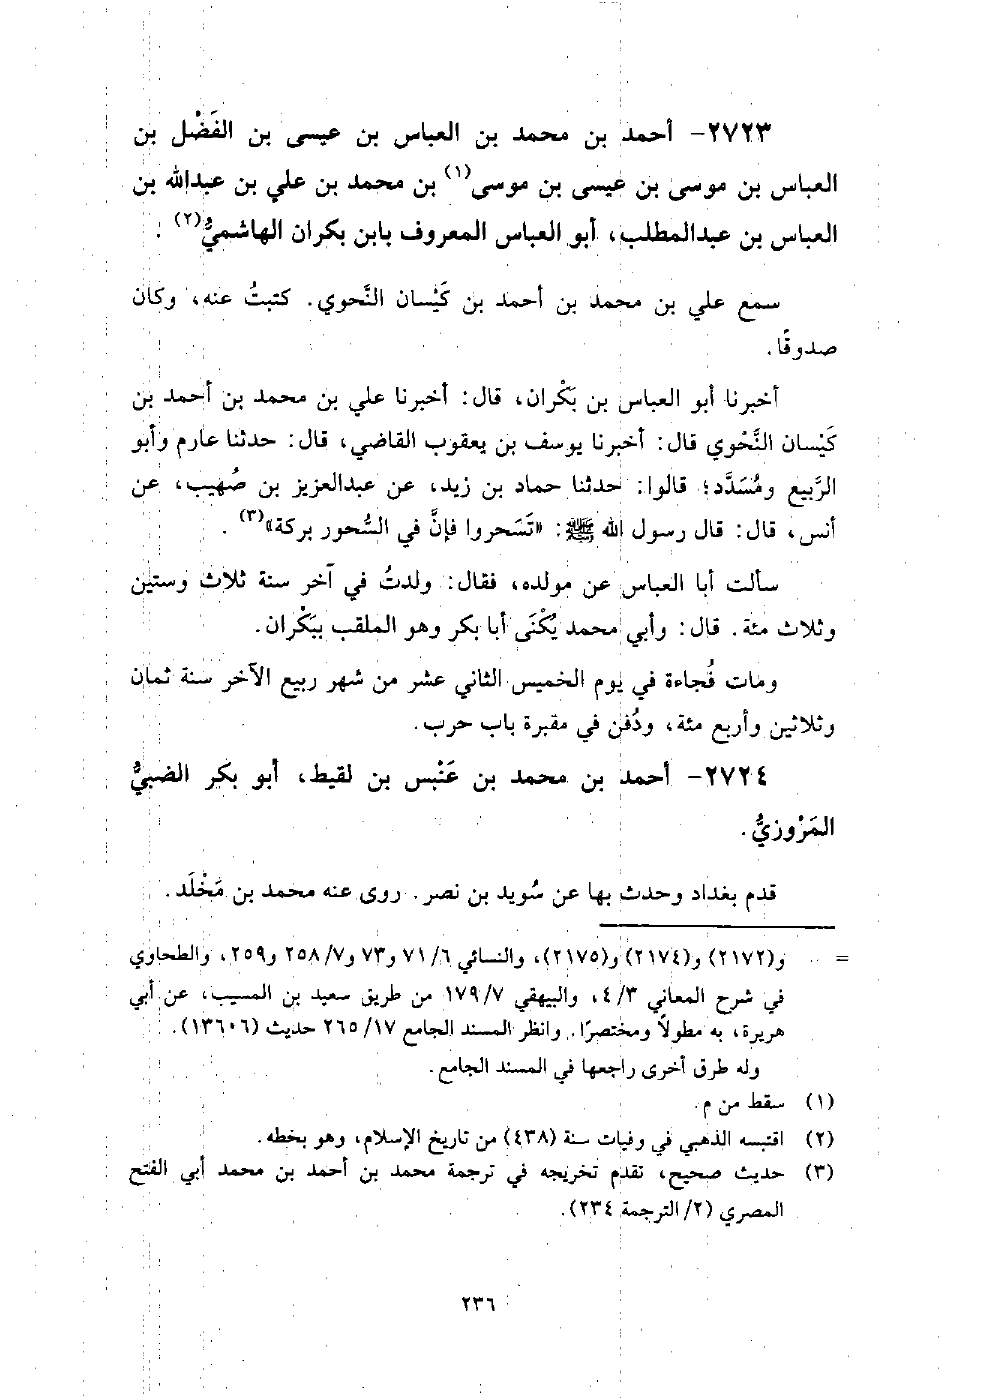 ٢٧٢٣- أحمد بن محمد بن العباس بن عيسى بن الفَضْل بن
العباس بن موسى بن عيسى بن موسى(١) بن محمد بن علي بن عبدالله بن
العباس بن عبدالمطلب، أبو العباس المعروف بابن بكران الهاشميُّ(٢).
سمع علي بن محمد بن أحمد بن كَيْسان النَّحوي. كتبتُ عنه، وكان
صدوقًا.
أخبرنا أبو العباس بن بَكْران، قال: أخبرنا علي بن محمد بن أحمد بن
كَيْسان النَّحْوي قال: أخبرنا يوسف بن يعقوب القاضي، قال: حدثنا عارم وأبو
الرَّبيع ومُسَدَّد؛ قالوا: حدثنا حماد بن زيد، عن عبدالعزيز بن صُهيب، عن
أنس، قال: قال رسول الله ﷺ: «تَسَحروا فإنَّ في السُّحور بركة»(٣).
سألت أبا العباس عن مولده، فقال: ولدتُ في آخر سنة ثلاث وستين
وثلاث مئة. قال: وأبي محمد يُكْنَى أبا بكر وهو الملقب ببَكْران.
ومات فُجاءة في يوم الخميس الثاني عشر من شهر ربيع الآخر سنة ثمان
وثلاثين وأربع مئة، ودُفن في مقبرة باب حرب.
٢٧٢٤- أحمد بن محمد بن عَنْبس بن لقيط، أبو بكر الضبيُّ
المَرْوزيُّ.
قدم بغداد وحدث بها عن سُويد بن نصر. روى عنه محمد بن مَخْلَد.
= و(٢١٧٢) و(٢١٧٤) و(٢١٧٥)، والنسائي ٦/ ٧١ و٧٣ و٧/ ٢٥٨ و٢٥٩، والطحاوي
في شرح المعاني ٣/ ٤، والبيهقي ٧/ ١٧٩ من طريق سعيد بن المسيب، عن أبي
هريرة، به مطولاً ومختصرًا. وانظر المسند الجامع ١٧/ ٢٦٥ حديث (١٣٦٠٦).
وله طرق أخرى راجعها في المسند الجامع.
(١) سقط من م.
(٢) اقتبسه الذهبي في وفيات سنة (٤٣٨) من تاريخ الإسلام، وهو بخطه.
(٣) حديث صحيح، تقدم تخريجه في ترجمة محمد بن أحمد بن محمد أبي الفتح
المصري (٢/ الترجمة ٢٣٤).
٢٣٦